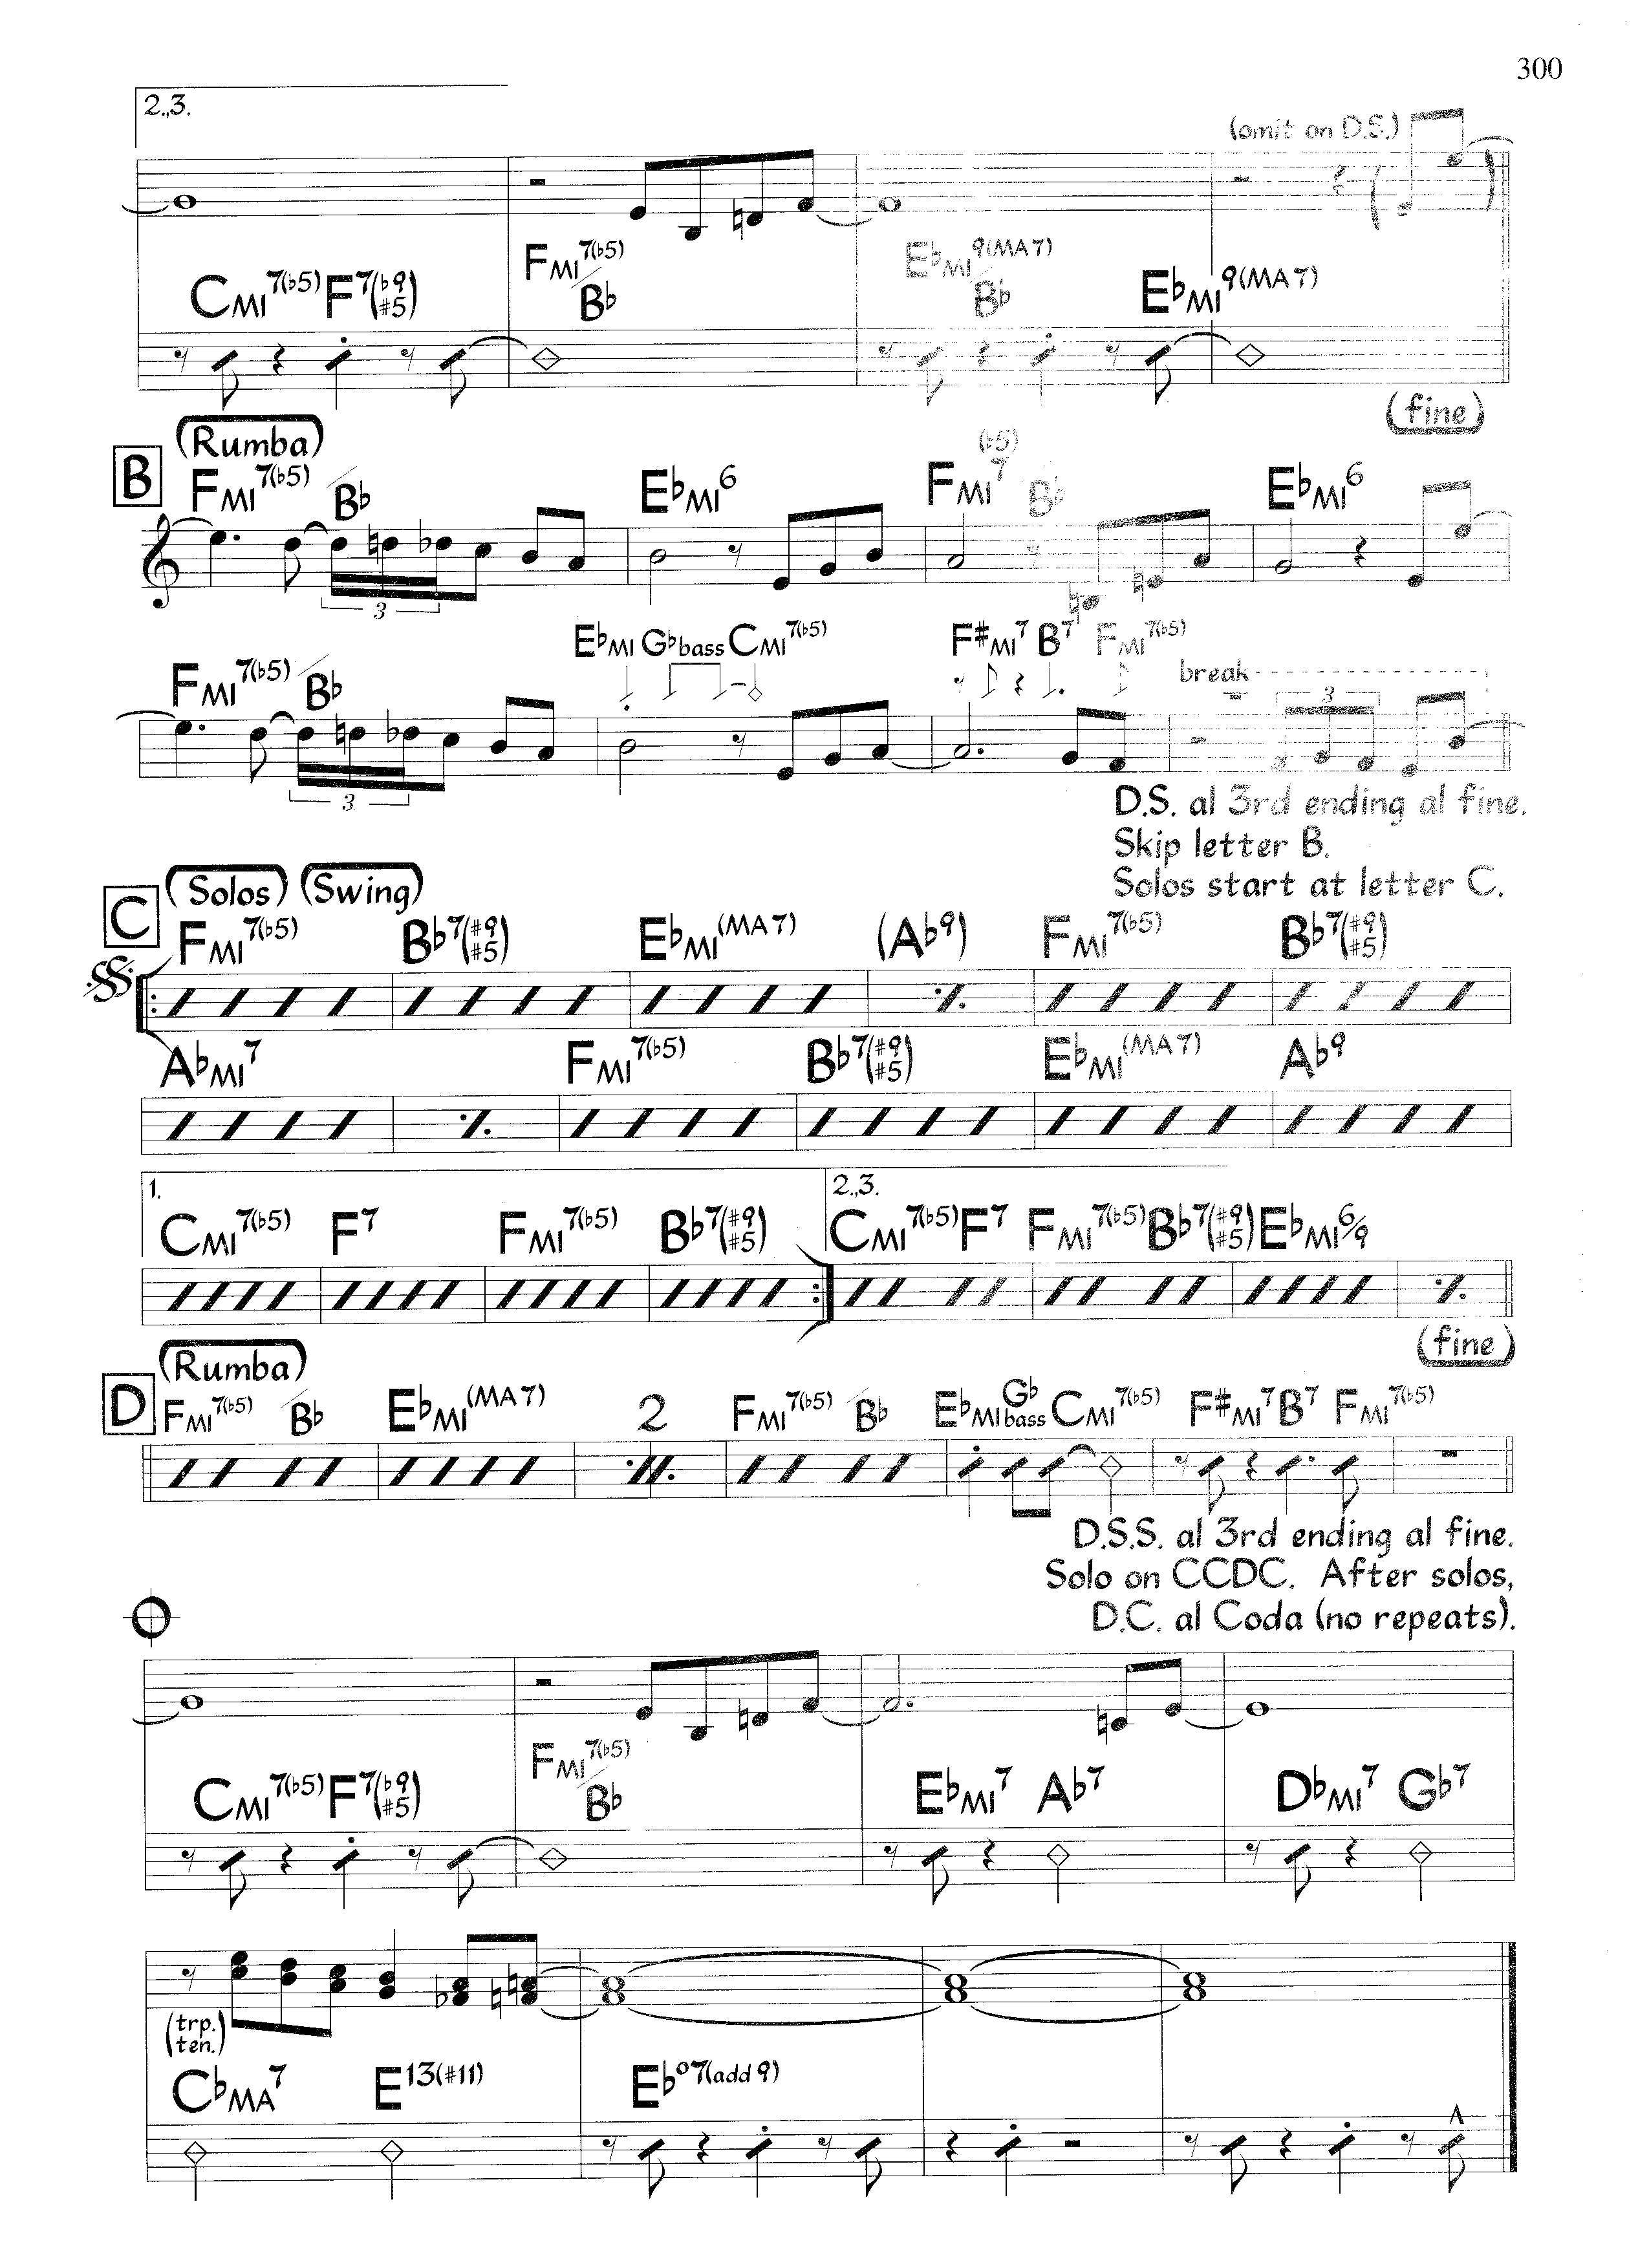 300
2.,3.
(omit on D.S.)
CMI7(b5) F7(b9 #5) FMI7(b5)/Bb EbMI9(MA7)/Bb EbMI9(MA7)
(fine)
B (Rumba)
FMI7(b5) /Bb EbMI6 FMI7(b5) /Bb EbMI6
3
EbMI Gb bass CMI7(b5) F#MI7 B7 FMI7(b5)
FMI7(b5) /Bb break 3
3
D.S. al 3rd ending al fine.
Skip letter B.
Solos start at letter C.
C (Solos) (Swing)
FMI7(b5) Bb7(#9 #5) EbMI(MA7) (Ab9) FMI7(b5) Bb7(#9 #5)
AbMI7 FMI7(b5) Bb7(#9 #5) EbMI(MA7) Ab9
1. 2.,3.
CMI7(b5) F7 FMI7(b5) Bb7(#9 #5) CMI7(b5) F7 FMI7(b5) Bb7(#9 #5) EbMI6/9
(fine)
D (Rumba)
FMI7(b5) /Bb EbMI(MA7) 2 FMI7(b5) /Bb EbMI Gb bass CMI7(b5) F#MI7 B7 FMI7(b5)
D.S.S. al 3rd ending al fine.
Solo on CCDC. After solos,
D.C. al Coda (no repeats).
CMI7(b5) F7(b9 #5) FMI7(b5)/Bb EbMI7 Ab7 DbMI7 Gb7
(trp.
ten.)
CbMA7 E13(#11) Ebo7(add 9)